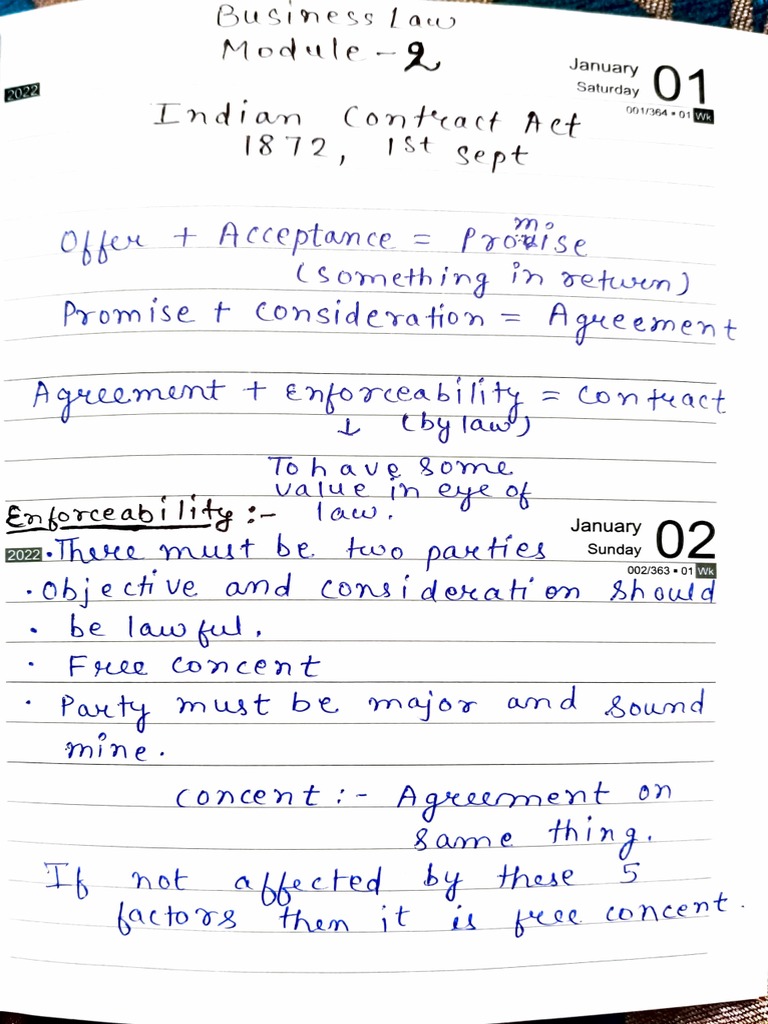 Business Law
Module - 2
January
Saturday
01
001/364 • 01 Wk
2022
Indian Contract Act
1872, 1st Sept
Offer + Acceptance = Promise
(something in return)
Promise + consideration = Agreement
Agreement + Enforceability = contract
↓ (by law)
To have some
value in eye of
law.
Enforceability :-
January
Sunday
02
002/363 • 01 Wk
2022
• There must be two parties
• Objective and consideration should
• be lawful.
• Free concent
• Party must be major and sound
mine.
concent :- Agreement on
same thing.
If not affected by these 5
factors then it is free concent.